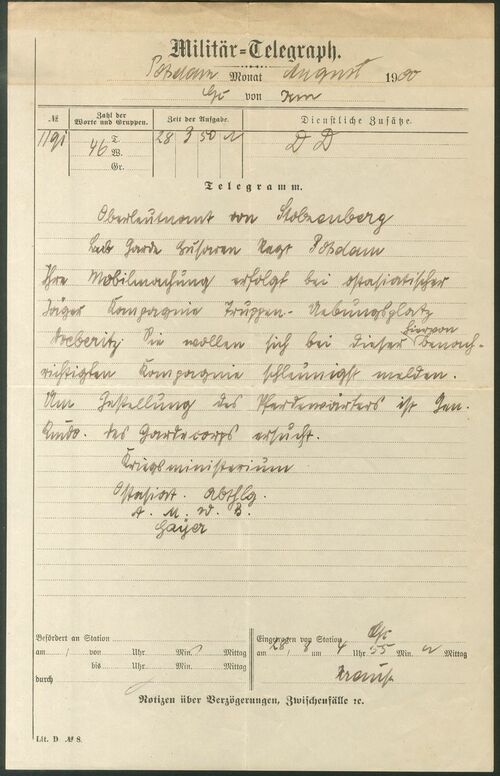 Militär-Telegraph.
Potsdam Monat August 1900
von
№ Zahl der Worte und Gruppen. Zeit der Aufgabe. Dienstliche Zusätze.
46 T. W. Gr. 28 3 50 N D D
Telegramm.
Oberleutnant von Stolzenberg
Leib Garde Husaren Regt Potsdam
Ihre Mobilmachung erfolgt bei ostasiatischer
Jäger Kompagnie Truppen-Uebungsplatz
Doeberitz. Sie wollen sich bei dieser hiervon benach-
richtigten Kompagnie schleunigst melden.
Um Gestellung des Pferdewärters ist Gen.
Kmdo. des Gardecorps ersucht.
Kriegsministerium
Ostasiat. Abthlg.
A. M. d. B.
Gayer
Befördert an Station
am / von Uhr Min. Mittag
bis Uhr Min. Mittag
durch
Eingegangen von Station
am 28/8 um 4 Uhr 55 Min. N Mittag
Krause
Notizen über Verzögerungen, Zwischenfälle ꝛc.
Lit. D. № 8.